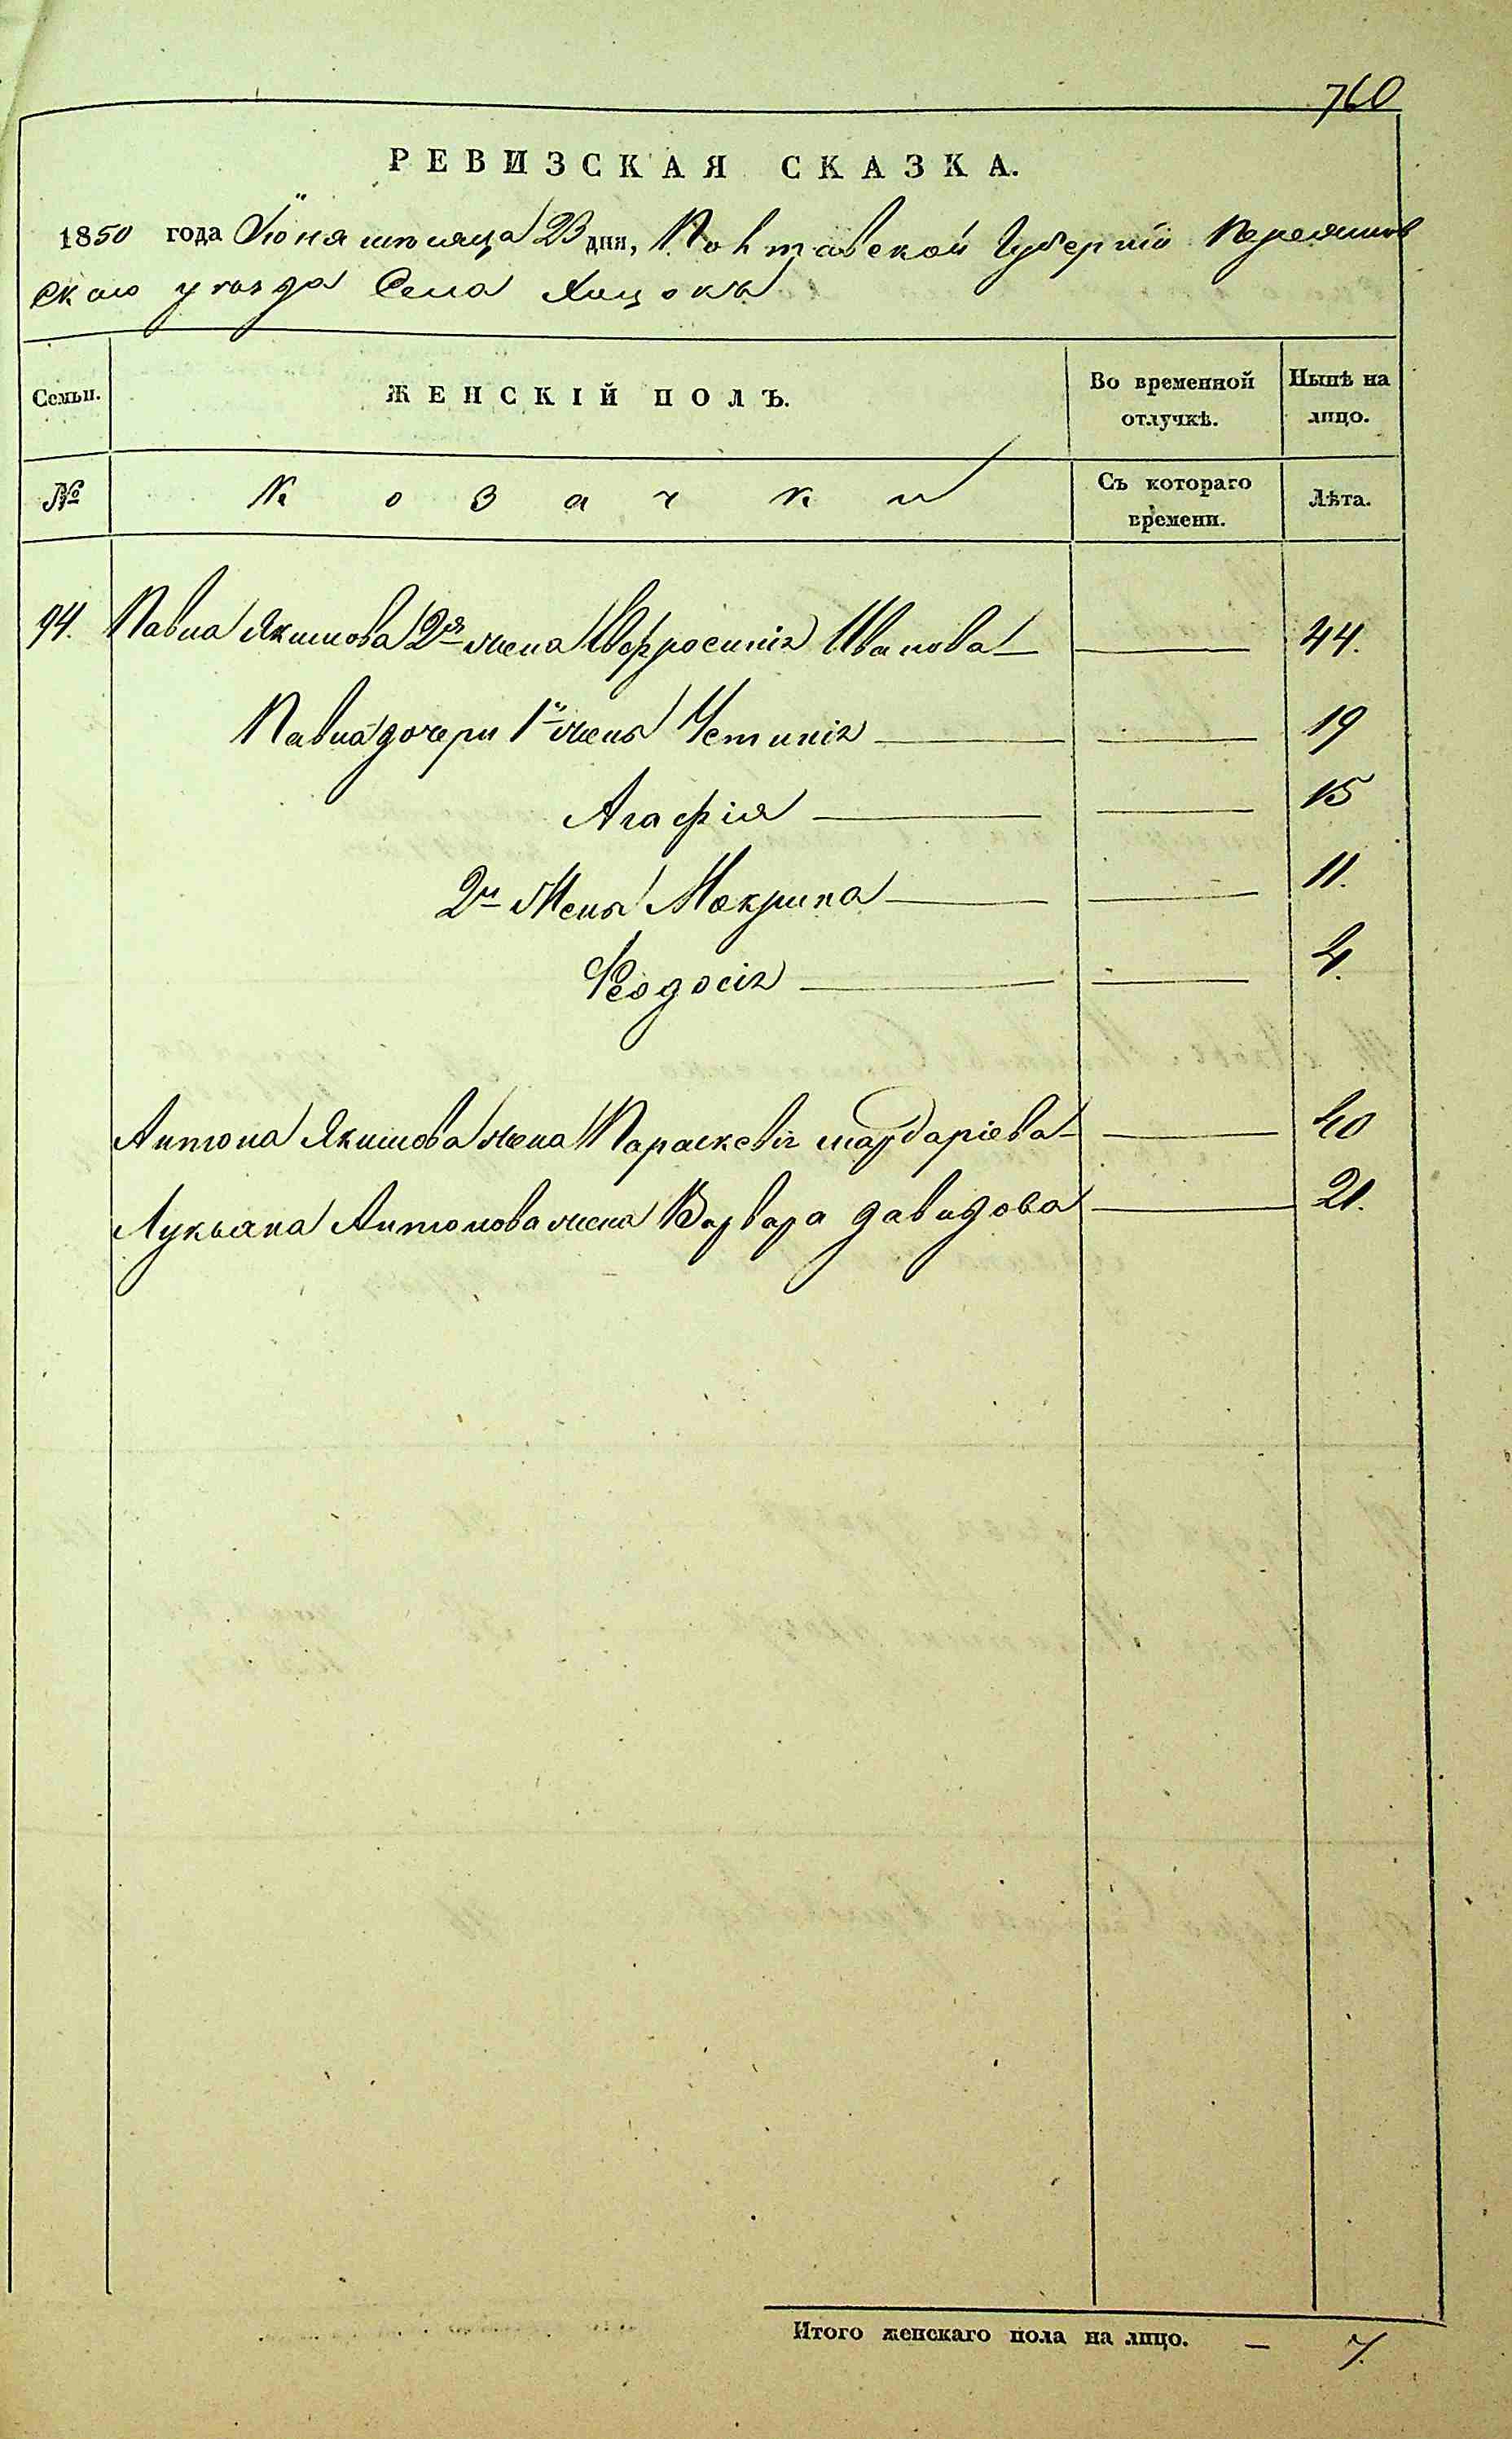 760
РЕВИЗСКАЯ СКАЗКА.
1850 года Іюня мѣсяца 23 дня, Полтавской Губерніи Переяслов
скаго уѣзда Села Хоцокъ
Семьи. ЖЕНСКІЙ ПОЛЪ. Во временной отлучкѣ. Нынѣ на лицо.
№ Козачки Съ котораго времени. Лѣта.
94. Павла Якимова 2я жена Евфросинія Иванова — — 44.
Павла дочери 1й жены Устинія — — 19
Агафія — — 15
2й Жены Макрина — — 11.
Феодосія — — 4.
Антона Якимова жена Параскевія Мардаріева — — 40
Лукьяна Антонова жена Варвара Давидова — 21.
Итого женскаго пола на лицо. — 7.